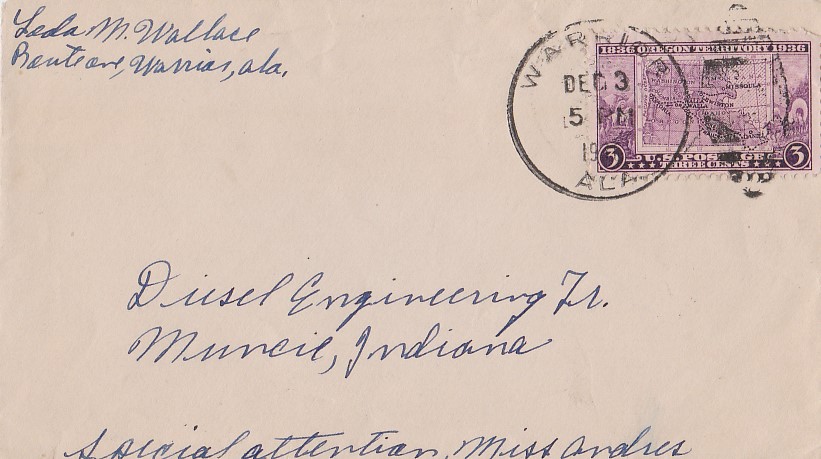 Leda M. Wallace
Route one, Warrior, Ala.
WARRIOR
DEC 3
5 PM
19
ALA.
1836 OREGON TERRITORY 1936
MISSOULA
WALLA WALLA
3 U.S. POSTAGE 3
THREE CENTS
Diesel Engineering Tr.
Muncie, Indiana
Special attention, Miss Andres